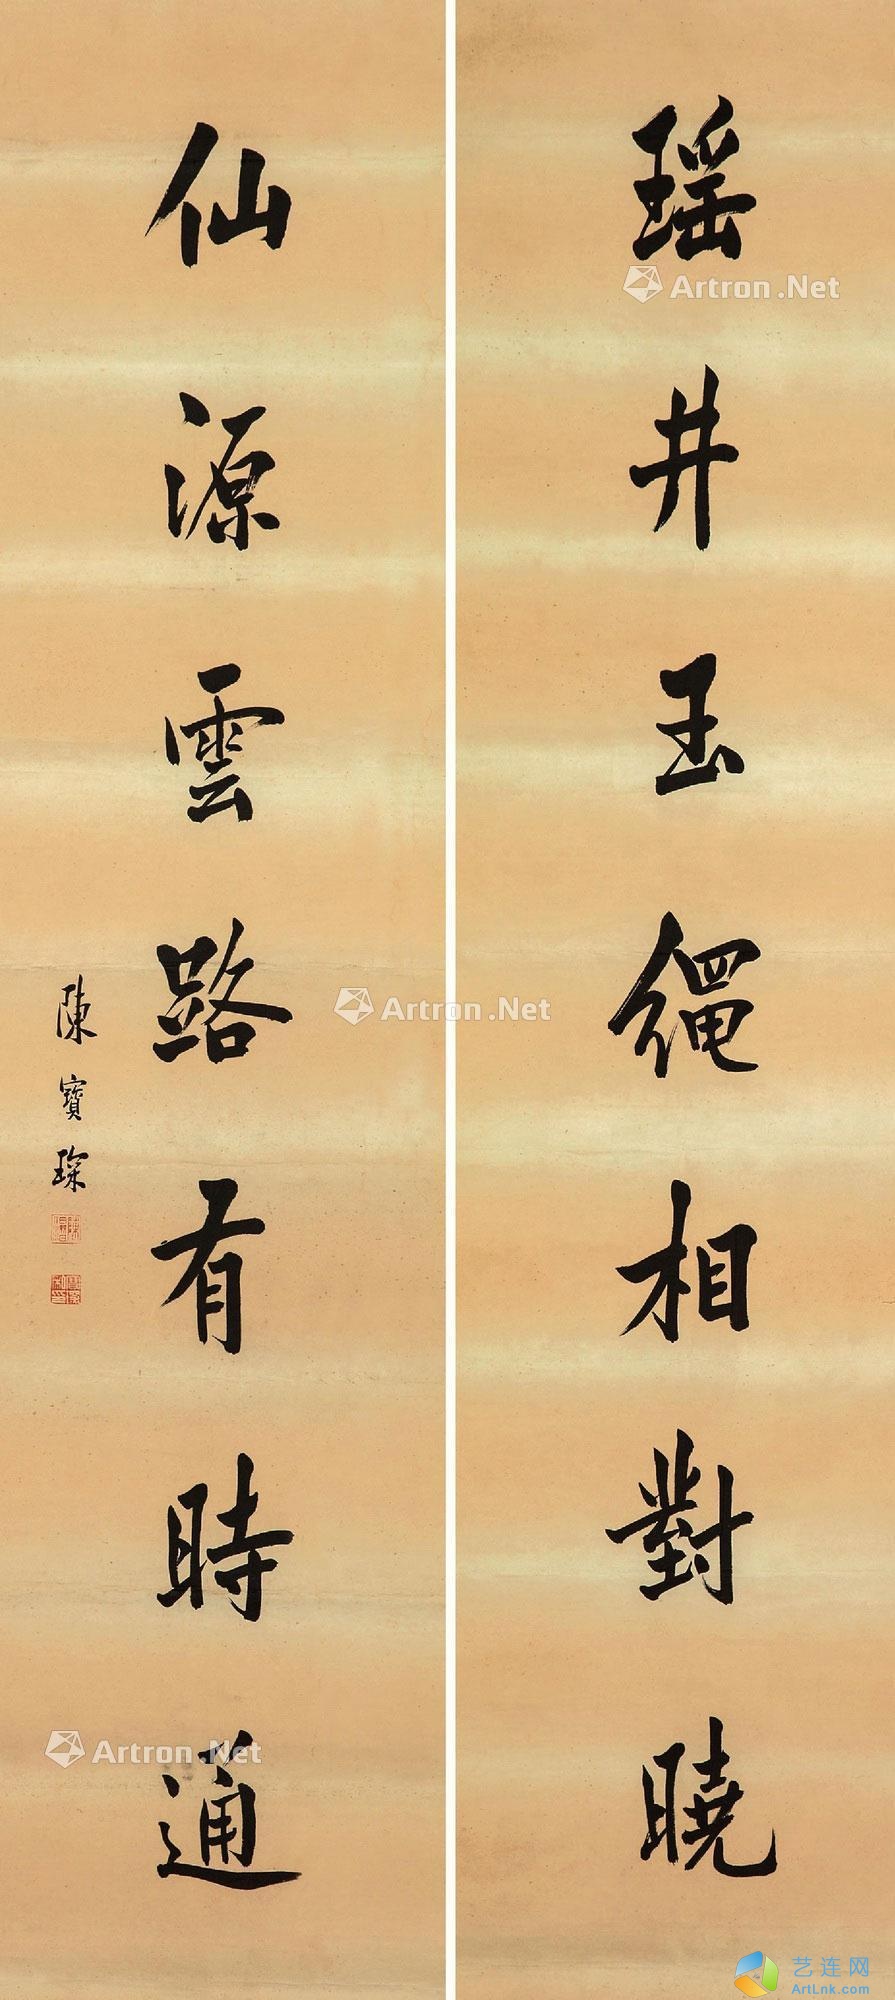 瑶井玉繩相對曉
仙源雲路有時通
陳寶琛
Artron.Net
Artron.Net
Artron.Net
艺连网
ArtLnk.com